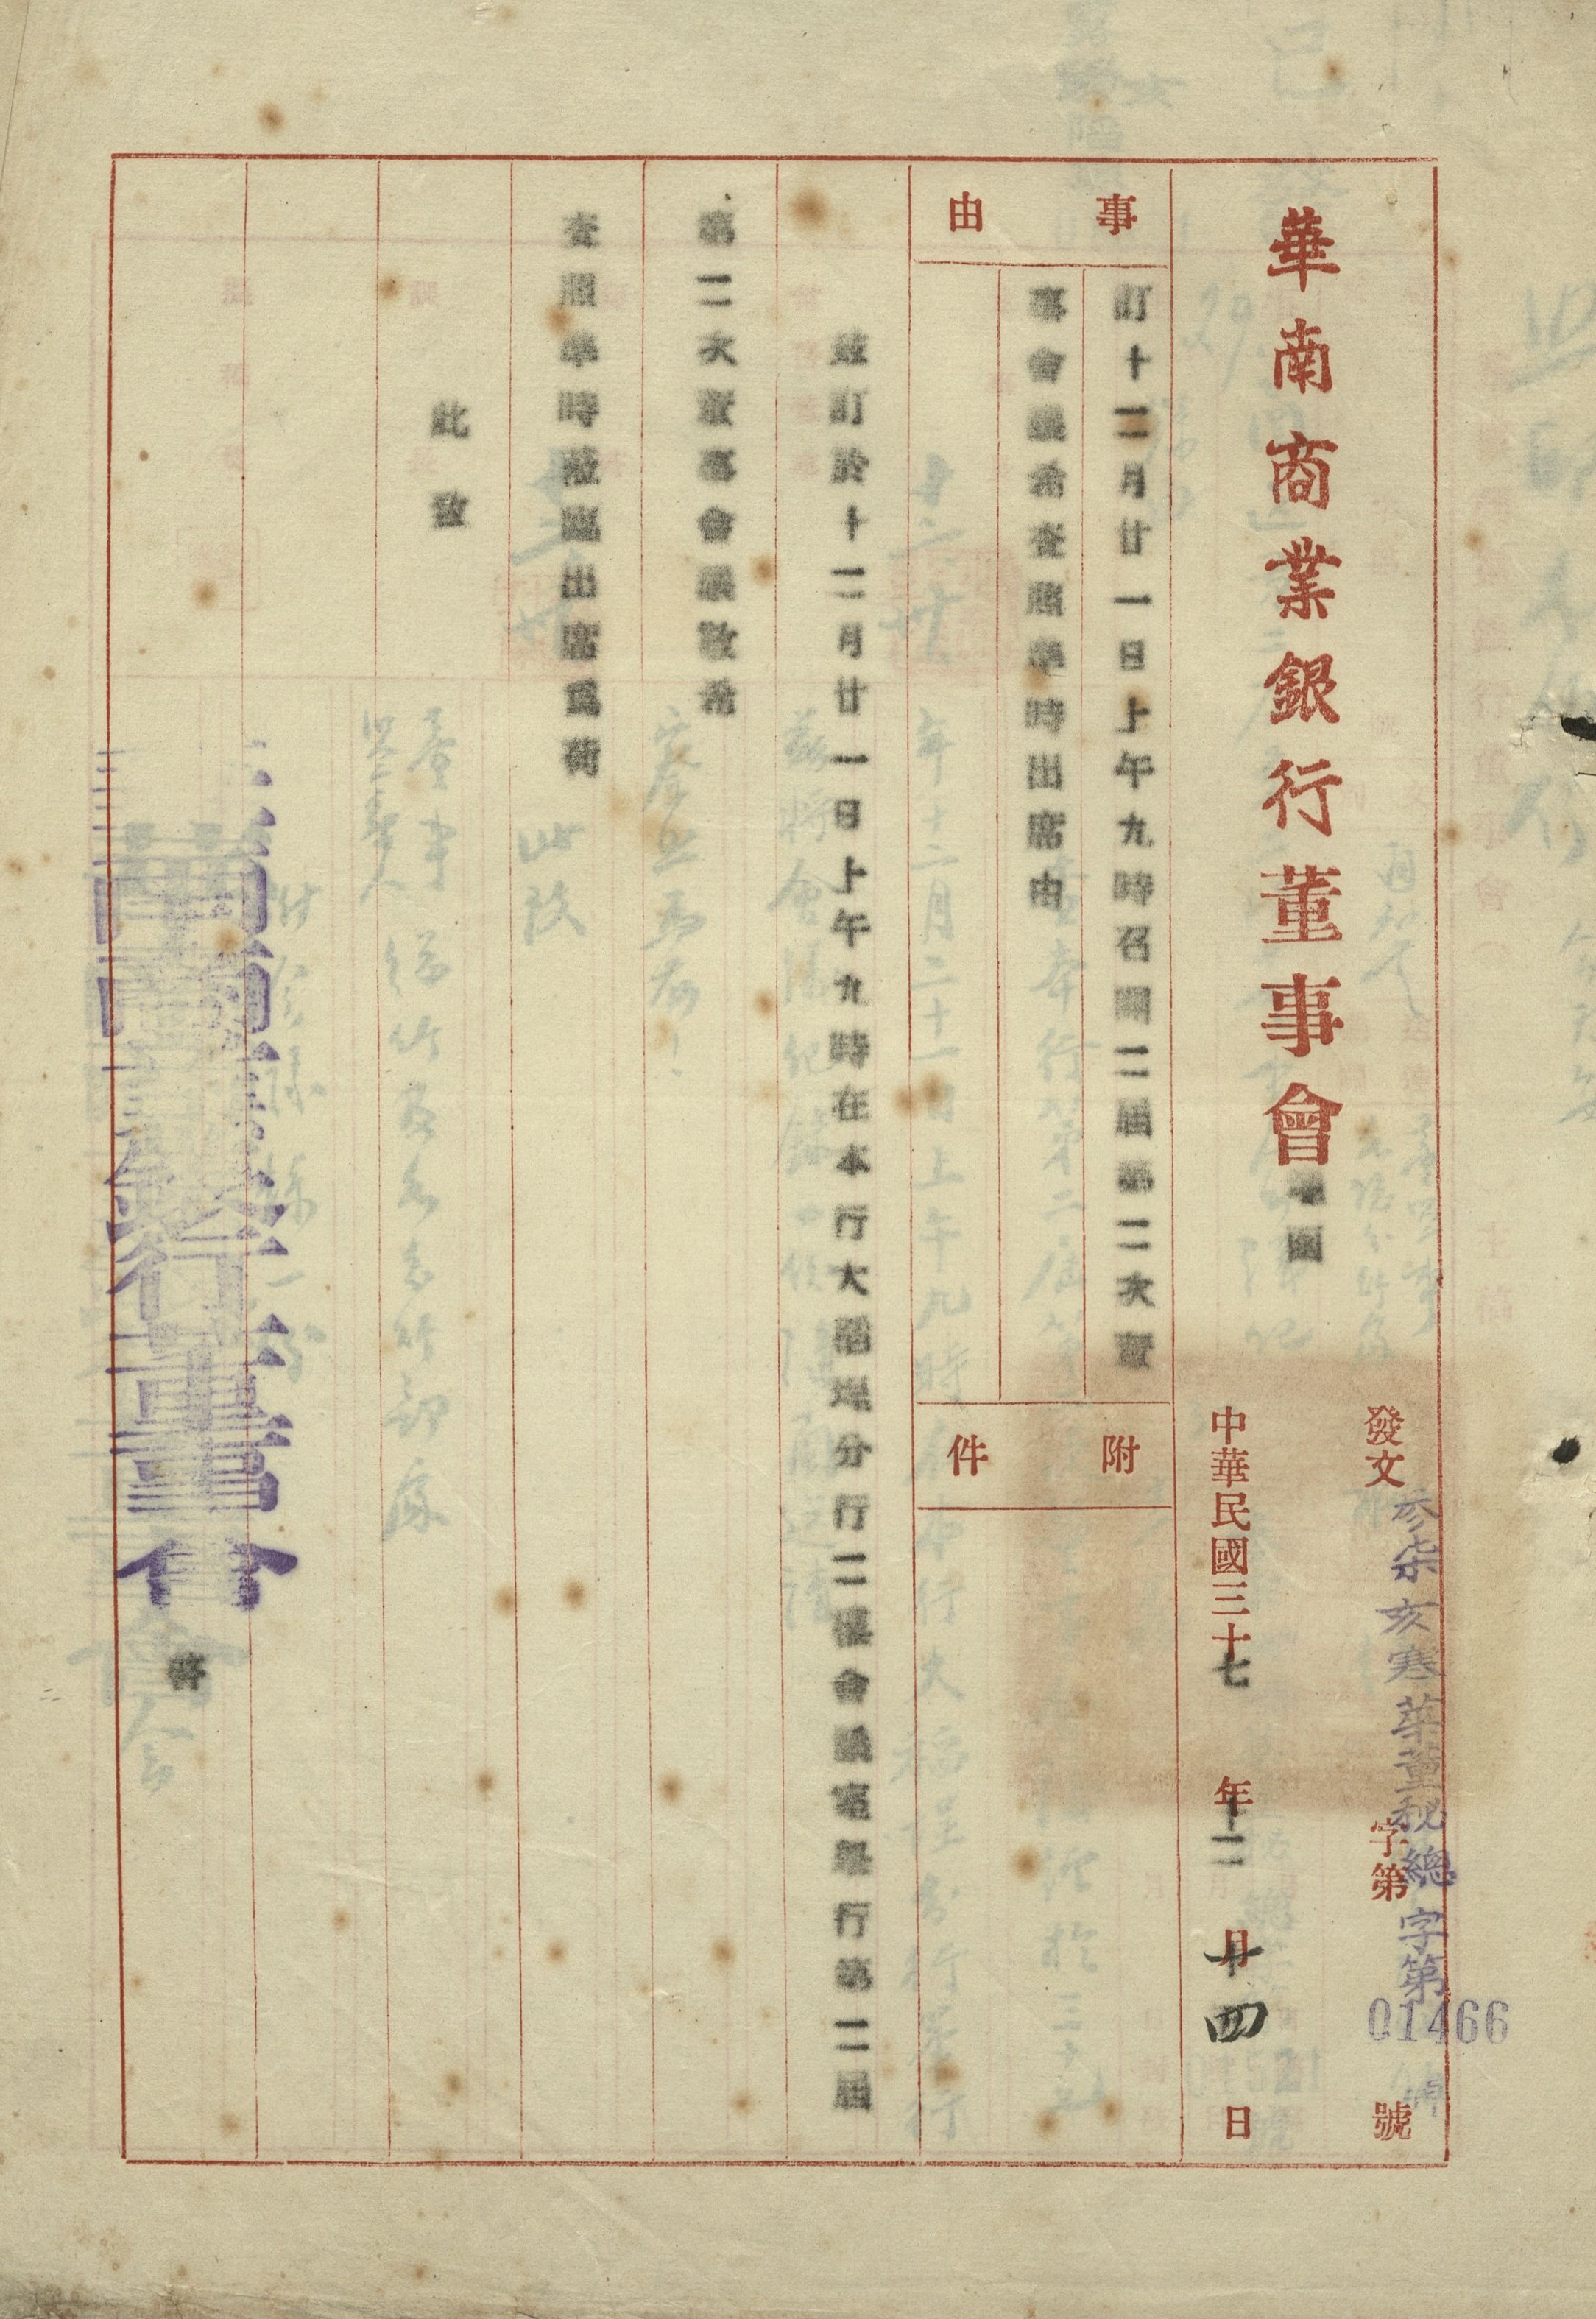 華南商業銀行董事會箋函
發文 參柒亥寒華董秘總字第01466號
字第
中華民國三十七年十二月十四日
事由
訂十二月廿一日上午九時召開二屆第二次董
事會議希查照準時出席由
附件
茲訂於十二月廿一日上午九時在本行大稻埕分行二樓會議室舉行第二屆
第二次董事會議敬希
查照準時蒞臨出席為荷
此致
華南商業銀行董事會 啓